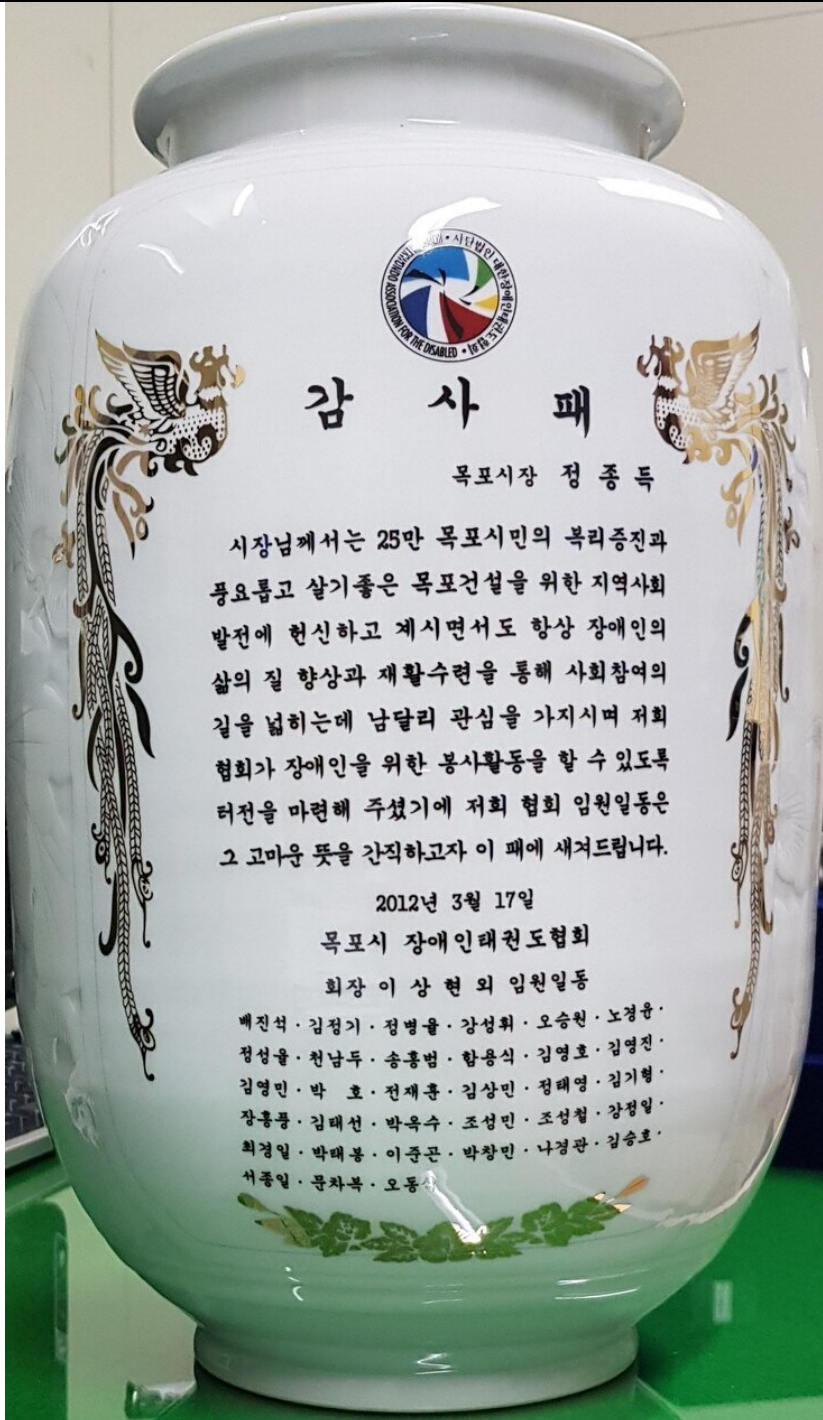 사단법인 대한장애인태권도협회
ASSOCIATION FOR THE DISABLED
감 사 패
목포시장 정 종 득
시장님께서는 25만 목포시민의 복리증진과
풍요롭고 살기좋은 목포건설을 위한 지역사회
발전에 헌신하고 계시면서도 항상 장애인의
삶의 질 향상과 재활수련을 통해 사회참여의
길을 넓히는데 남달리 관심을 가지시며 저희
협회가 장애인을 위한 봉사활동을 할 수 있도록
터전을 마련해 주셨기에 저희 협회 임원일동은
그 고마운 뜻을 간직하고자 이 패에 새겨드립니다.
2012년 3월 17일
목포시 장애인태권도협회
회장 이 상 현 외 임원일동
배진석 · 김정기 · 정병율 · 강성휘 · 오승원 · 노경윤 ·
정성율 · 천남두 · 송홍범 · 함용식 · 김영호 · 김영진 ·
김영민 · 박 호 · 전재훈 · 김상민 · 정태영 · 김기형 ·
장흥풍 · 김태선 · 박옥수 · 조성민 · 조성철 · 강정일 ·
최경일 · 박태봉 · 이준곤 · 박창민 · 나경관 · 김승호 ·
서종일 · 문차복 ·